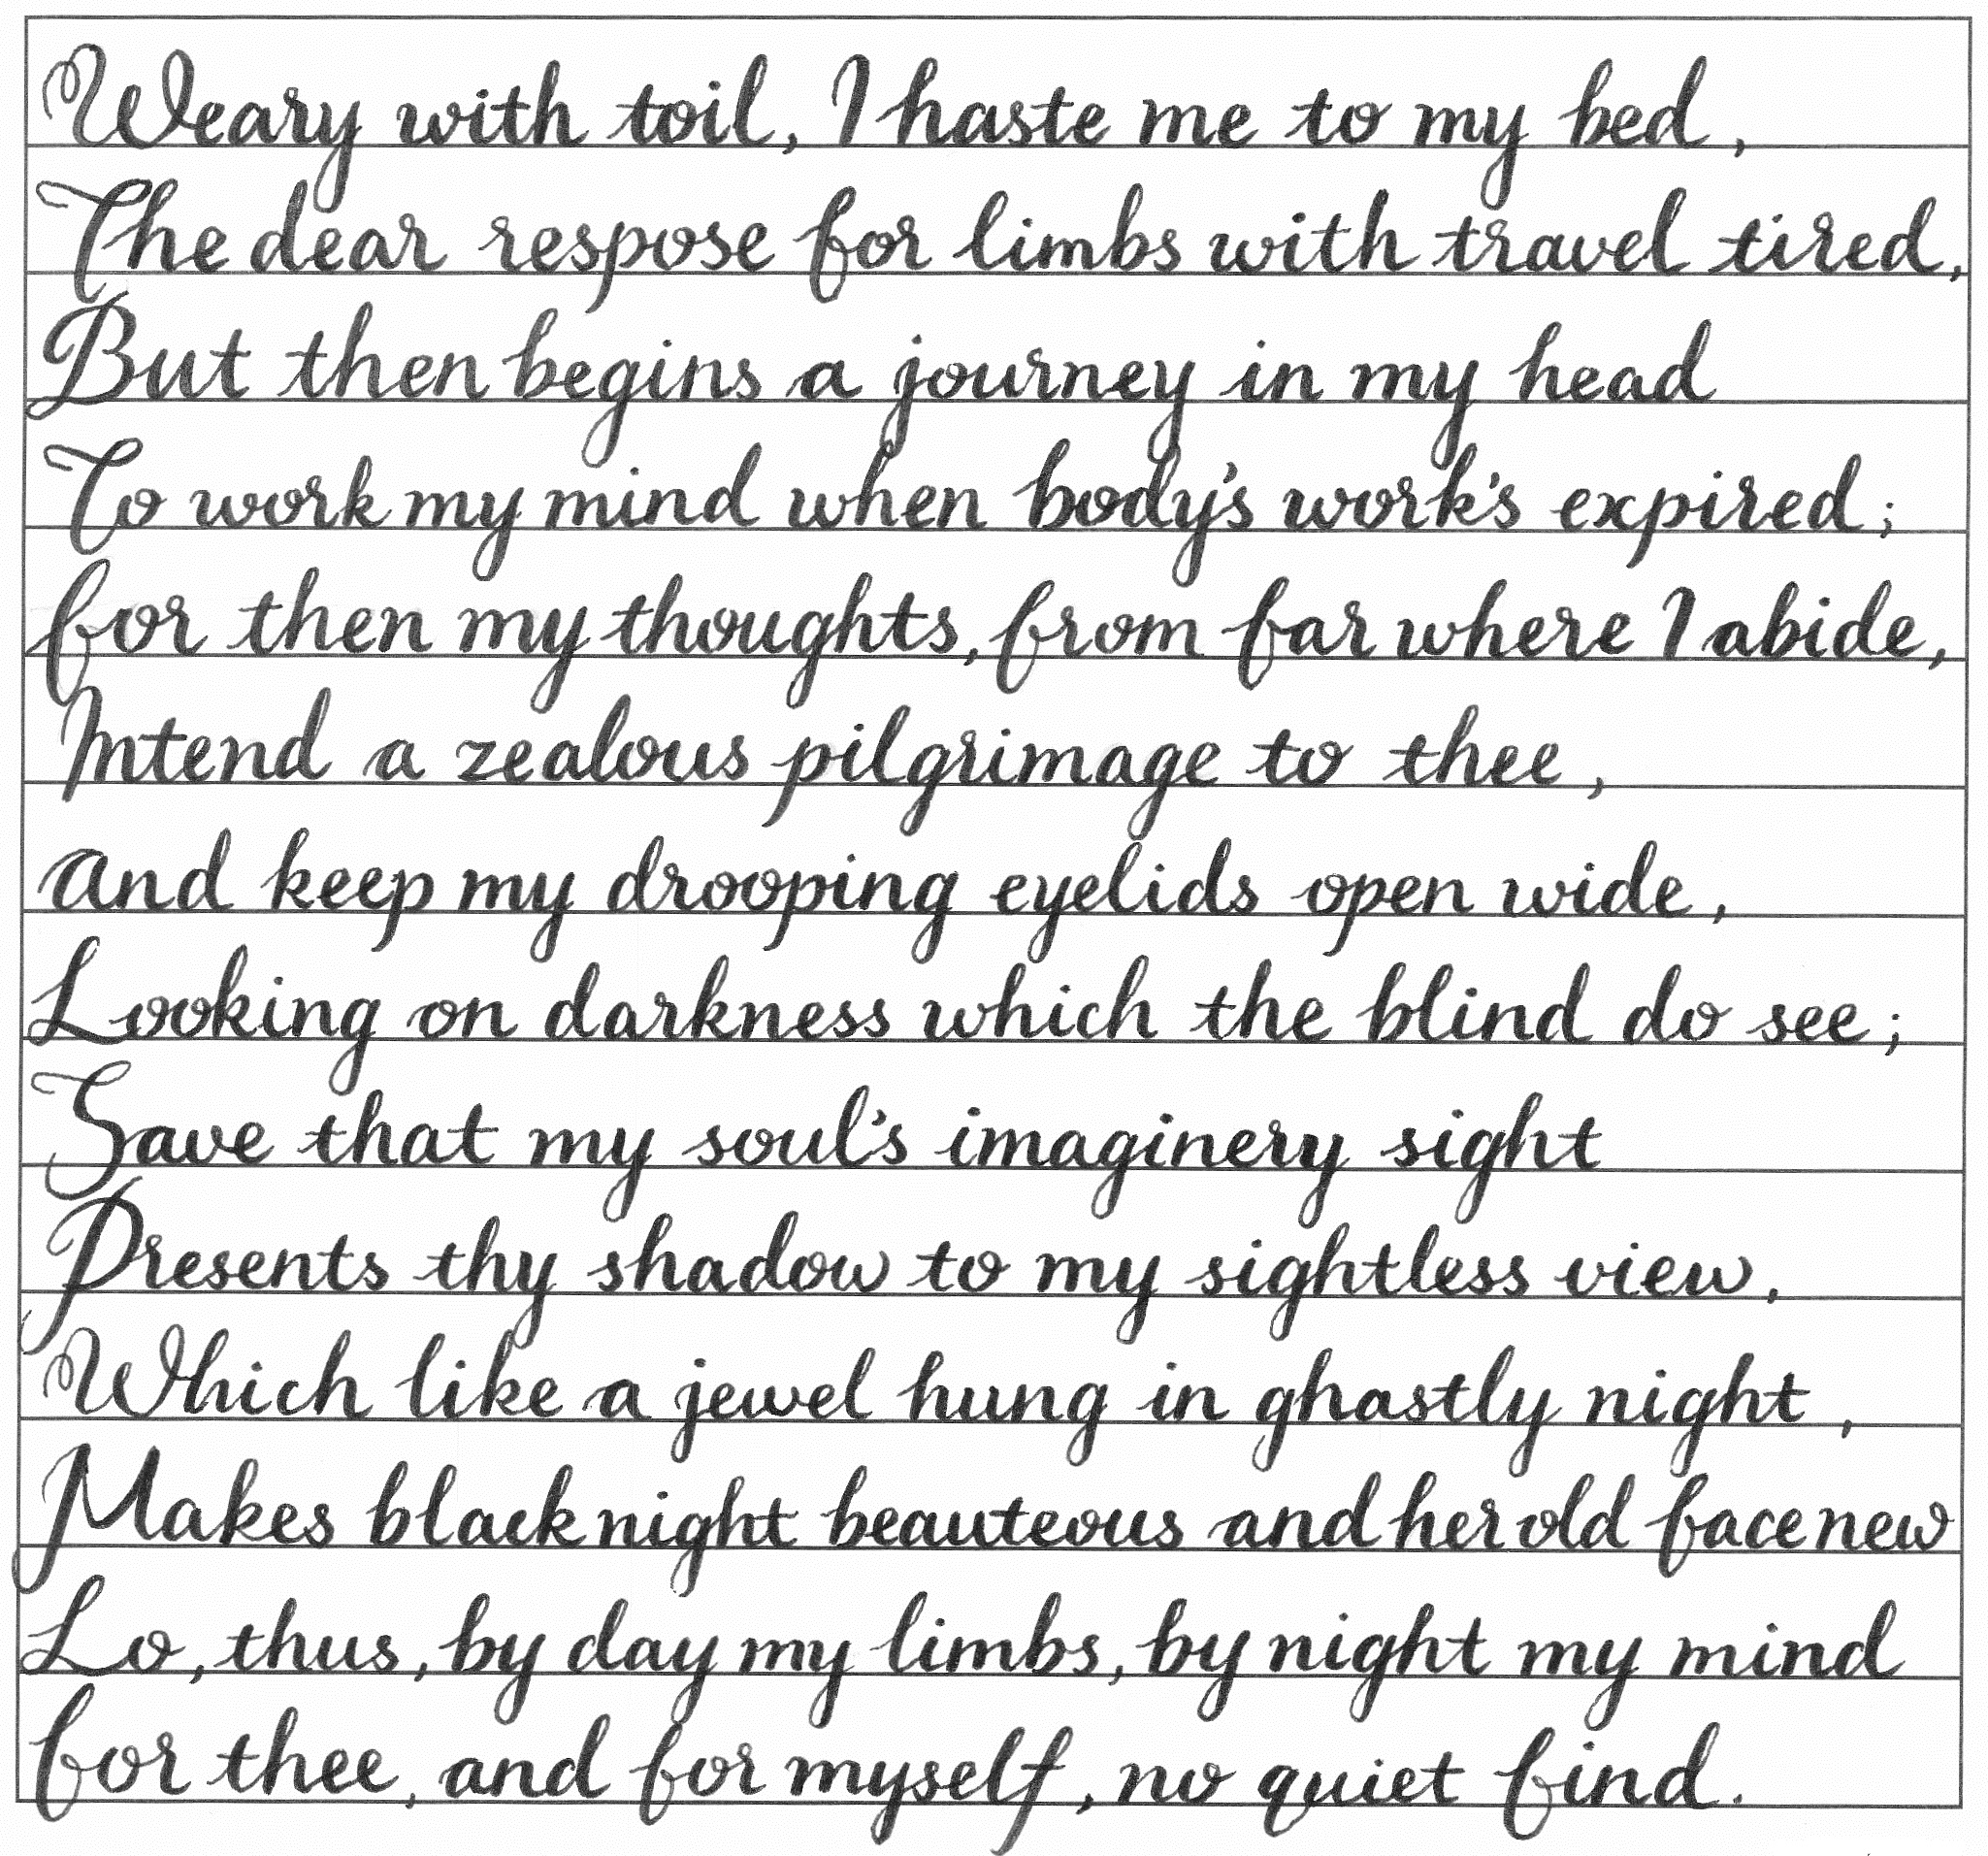 Weary with toil, I haste me to my bed,
The dear respose for limbs with travel tired,
But then begins a journey in my head
To work my mind when body's work's expired;
For then my thoughts, from far where I abide,
Intend a zealous pilgrimage to thee,
And keep my drooping eyelids open wide,
Looking on darkness which the blind do see;
Save that my soul's imaginery sight
Presents thy shadow to my sightless view,
Which like a jewel hung in ghastly night,
Makes black night beauteous and her old face new
Lo, thus, by day my limbs, by night my mind
For thee, and for myself, no quiet find.